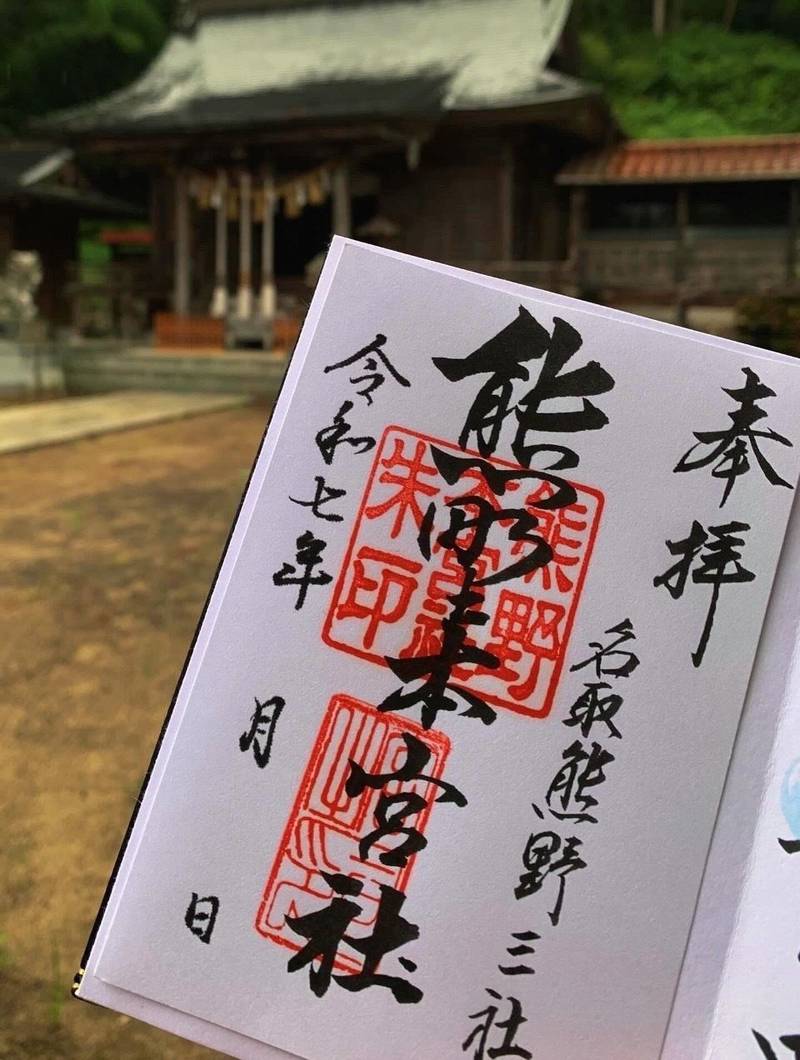 奉拝
名取熊野三社
熊野本宮社
熊野
朱印
令和七年
月
日